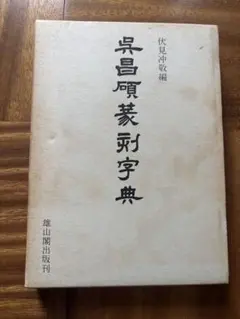 伏見冲敬編
吳昌碩篆刻字典
雄山閣出版刊